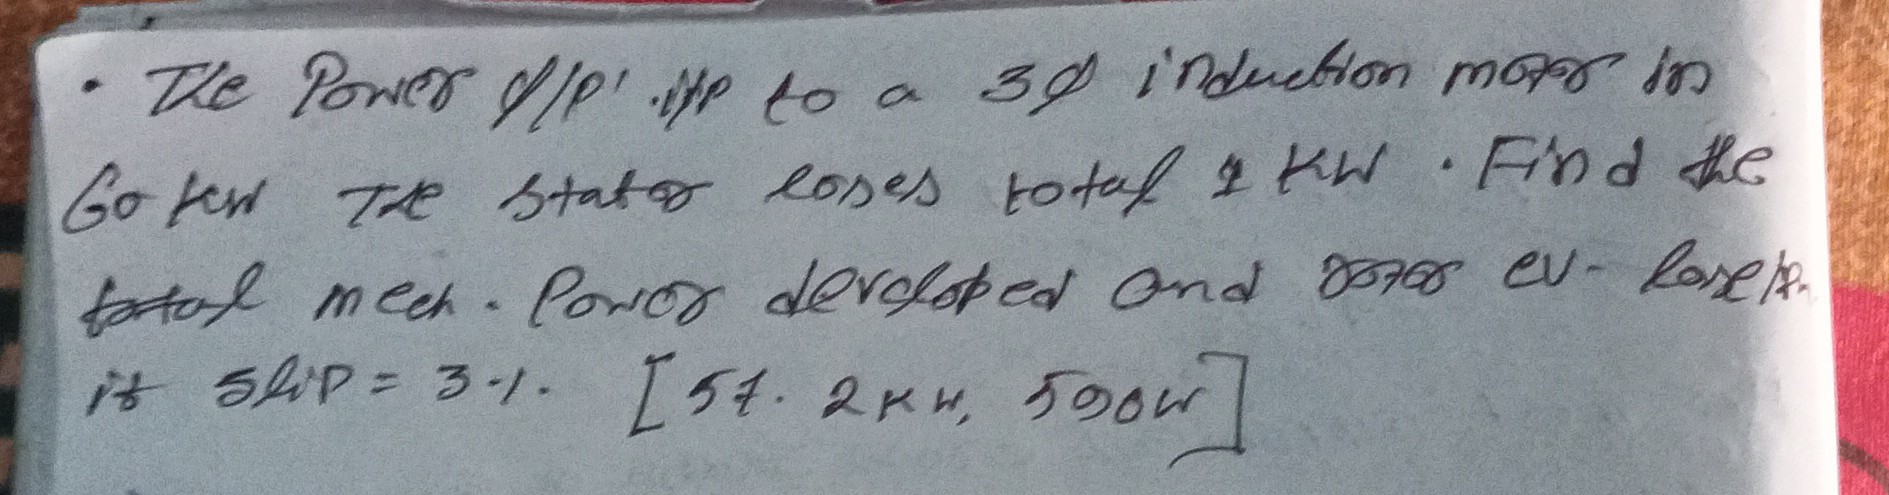 • The Power i/p to a 3φ induction motor is
60 kw The stator loses total 1 KW. Find the
total mech. Power developed and rotor cu- loses
if slip = 3%. [57.2KW, 590W]